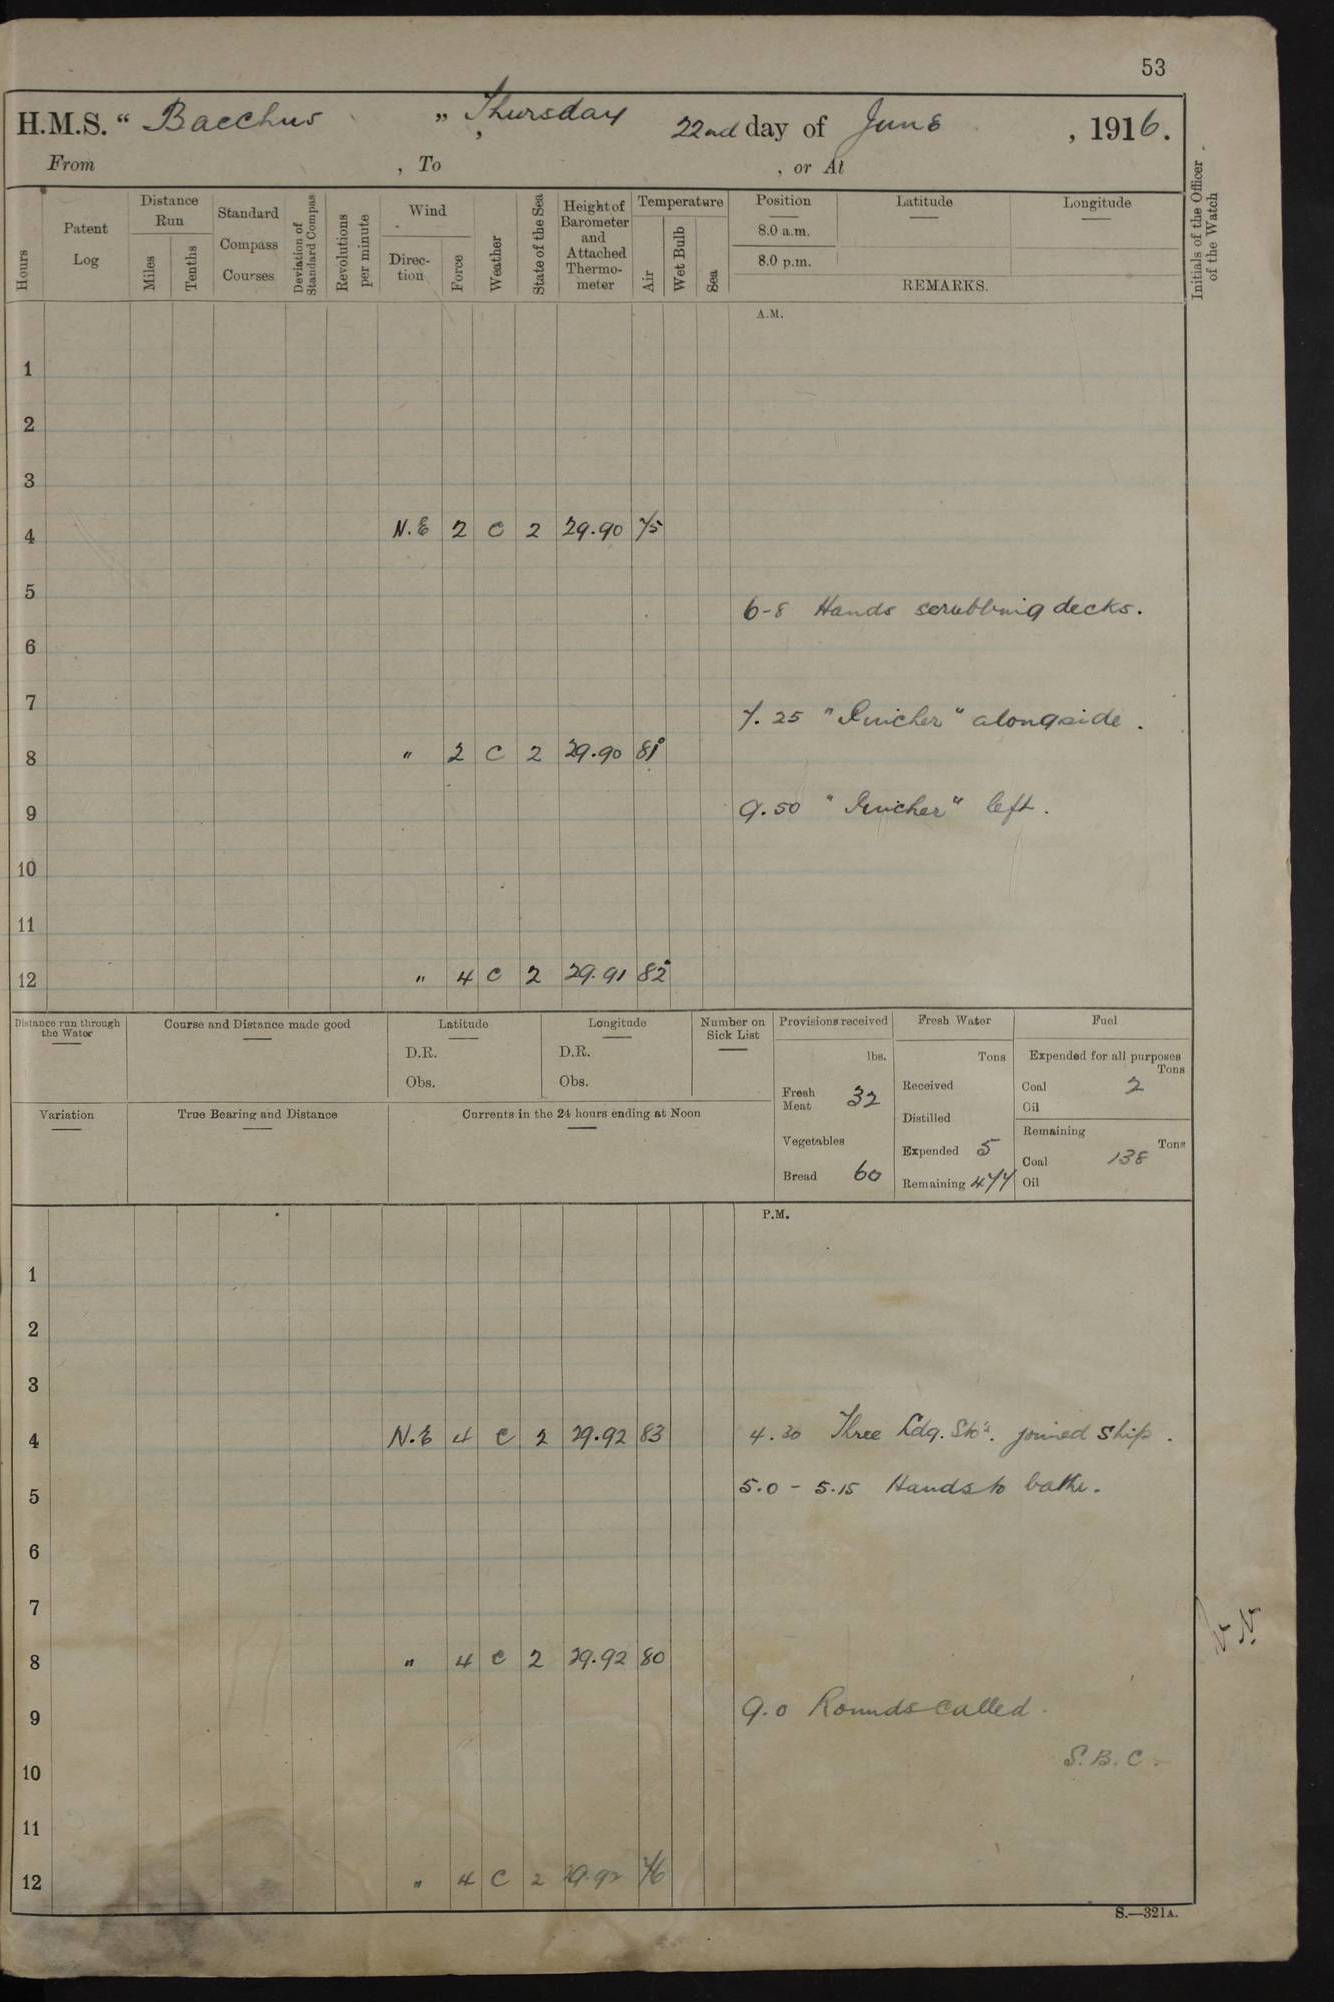 53
H.M.S. “ Bacchus ” Thursday 22nd day of June , 1916.
From , To , or At
Hours
Patent Log
Distance Run
Miles
Tenths
Standard Compass Courses
Deviation of Standard Compass
Revolutions per minute
Wind
Direction
Force
Weather
State of the Sea
Height of Barometer and Attached Thermometer
Temperature
Air
Wet Bulb
Sea
Position
8.0 a.m.
8.0 p.m.
Latitude
Longitude
REMARKS.
Initials of the Officer of the Watch
A.M.
1
2
3
4 N.E 2 C 2 29.90 75
5
6-8 Hands scrubbing decks.
6
7
7.25 "Pincher" alongside.
8 " 2 C 2 29.90 81°
9
9.50 "Pincher" left.
10
11
12 " 4 C 2 29.91 82°
Distance run through the Water
Course and Distance made good
Latitude
D.R.
Obs.
Longitude
D.R.
Obs.
Number on Sick List
Provisions received
lbs.
Fresh Meat 32
Vegetables
Bread 60
Fresh Water
Tons
Received
Distilled
Expended 5
Remaining 477
Fuel
Expended for all purposes
Tons
Coal 2
Oil
Remaining
Tons
Coal 138
Oil
Variation
True Bearing and Distance
Currents in the 24 hours ending at Noon
P.M.
1
2
3
4 N.E 4 C 2 29.92 83 4.30 Three Ldg. Sto's. joined ship.
5 5.0 - 5.15 Hands to bathe.
6
7
8 " 4 C 2 29.92 80
9 9.0 Rounds called.
S.B.C.
10
11
12 " 4 C 2 29.92 76
S.—321A.